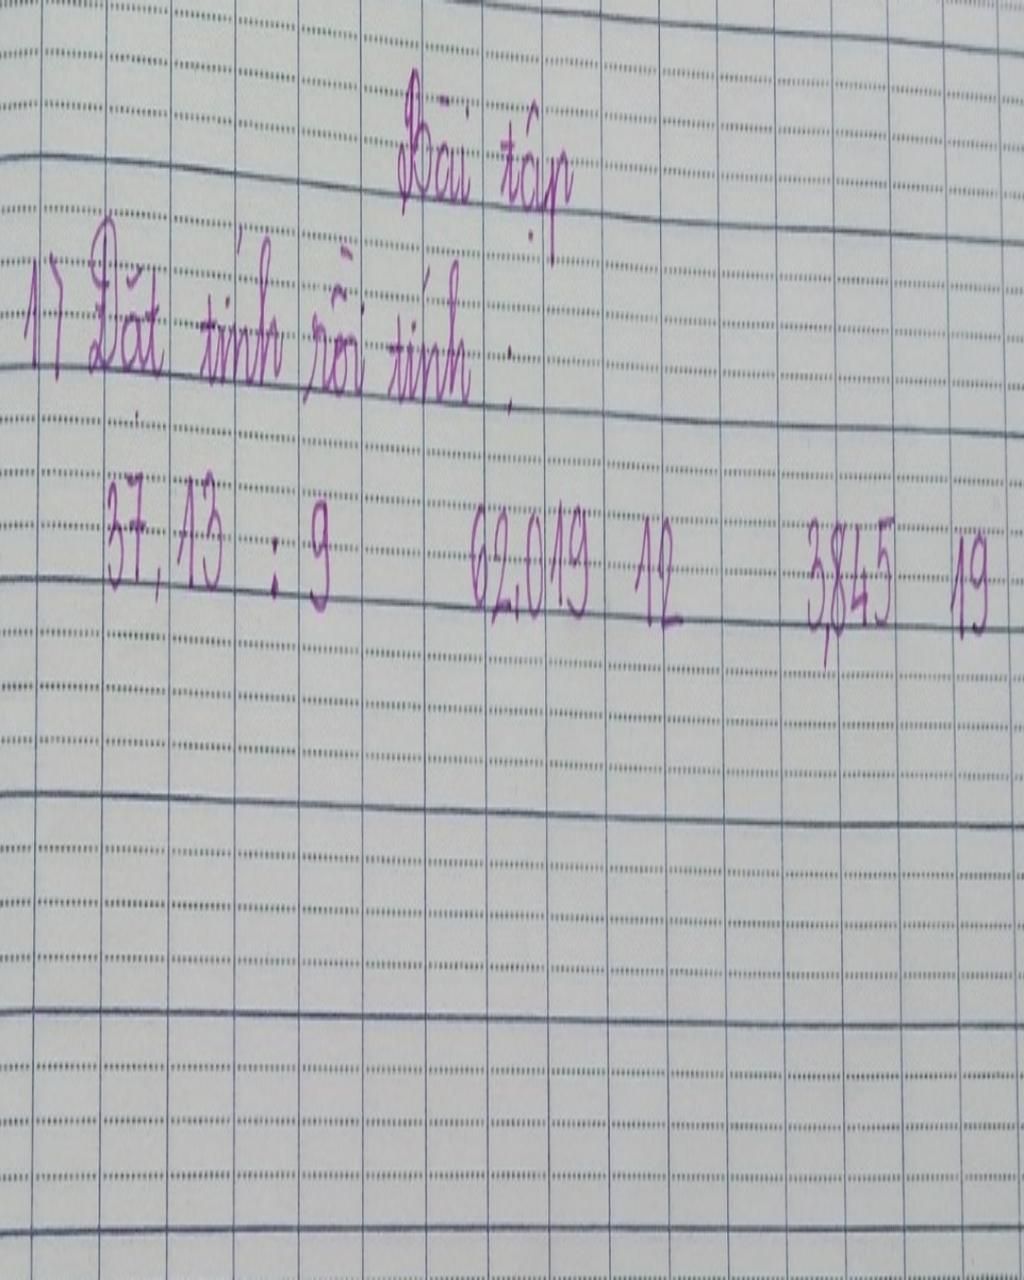 Bài tập
1) Đặt tính rồi tính :
37,13 : 9 62,019 12 3,845 19